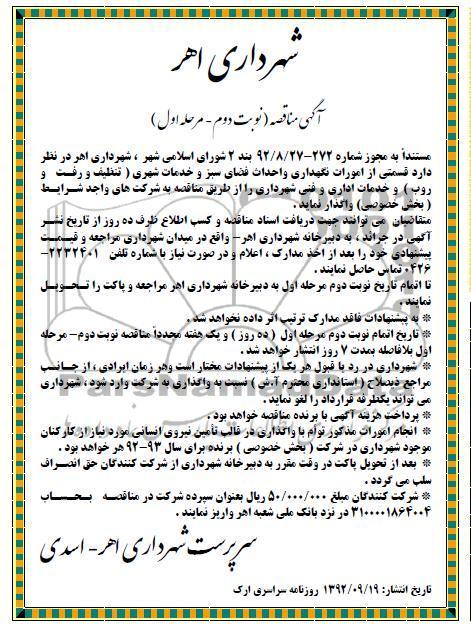 شهرداری اهر
آگهی مناقصه (نوبت دوم - مرحله اول)
مستنداً به مجوز شماره ۲۷۲-۹۲/۸/۲۷ بند ۲ شورای اسلامی شهر ، شهرداری اهر در نظر
دارد قسمتی از امورات نگهداری واحداث فضای سبز و خدمات شهری ( تنظیف و رفت و
روب ) و خدمات اداری و فنی شهرداری را از طریق مناقصه به شرکت های واجد شرایط
( بخش خصوصی) واگذار نماید .
متقاضیان می توانند جهت دریافت اسناد مناقصه و کسب اطلاع ظرف ده روز از تاریخ نشر
آگهی در جرائد ، به دبیرخانه شهرداری اهر- واقع در میدان شهرداری مراجعه و قیمت
پیشنهادی خود را بعد از اخذ مدارک ، اعلام و در صورت نیاز با شماره تلفن ۲۲۳۲۴۰۱-
۰۴۲۶ تماس حاصل نمایند .
تا اتمام تاریخ نوبت دوم مرحله اول به دبیرخانه شهرداری اهر مراجعه و پاکت را تحویل
نمایند .
※ به پیشنهادات فاقد مدارک ترتیب اثر داده نخواهد شد .
※ تاریخ اتمام نوبت دوم مرحله اول ( ده روز ) و یک هفته مجدداً مناقصه نوبت دوم- مرحله
اول بلافاصله بمدت ۷ روز انتشار خواهد شد .
※ شهرداری در رد یا قبول هر یک از پیشنهادات مختار است وهر زمان ایرادی ، از جانب
مراجع ذیصلاح ( استانداری محترم آ.ش ) نسبت به واگذاری به شرکت وارد شود ، شهرداری
می تواند یکطرفه قرارداد را لغو نماید .
※ پرداخت هزینه آگهی با برنده مناقصه خواهد بود .
※ انجام امورات مذکور توام با واگذاری در قالب تأمین نیروی انسانی مورد نیاز از کارکنان
موجود شهرداری در شرکت ( بخش خصوصی ) برنده برای سال ۹۳-۹۲ هر خواهد بود .
※ بعد از تحویل پاکت در وقت مقرر به دبیرخانه شهرداری از شرکت کنندگان حق انصراف
سلب می گردد .
※ شرکت کنندگان مبلغ ۵۰/۰۰۰/۰۰۰ ریال بعنوان سپرده شرکت در مناقصه بحساب
۳۱۰۰۰۰۱۸۶۴۰۰۴ در نزد بانک ملی شعبه اهر واریز نمایند .
سرپرست شهرداری اهر- اسدی
تاریخ انتشار: ۱۳۹۲/۰۹/۱۹ روزنامه سراسری ارک